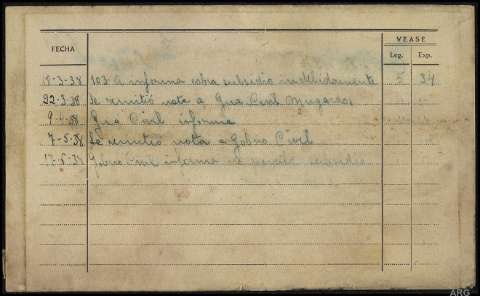 FECHA VEASE
Leg. Exp.
15-3-38 103 A informa cobra subsidio indebidamente 5 34
22-3-38 Se remitió nota a Gua Civil Mugardos
9-4-38 Gua Civil informa
7-5-38 Se remitió nota a Gobno Civil
17-5-38 informa subsidio
ARG